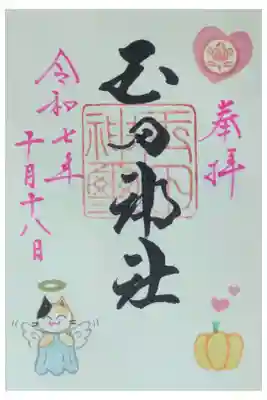 奉拝
玉田神社
令和七年
十月十八日